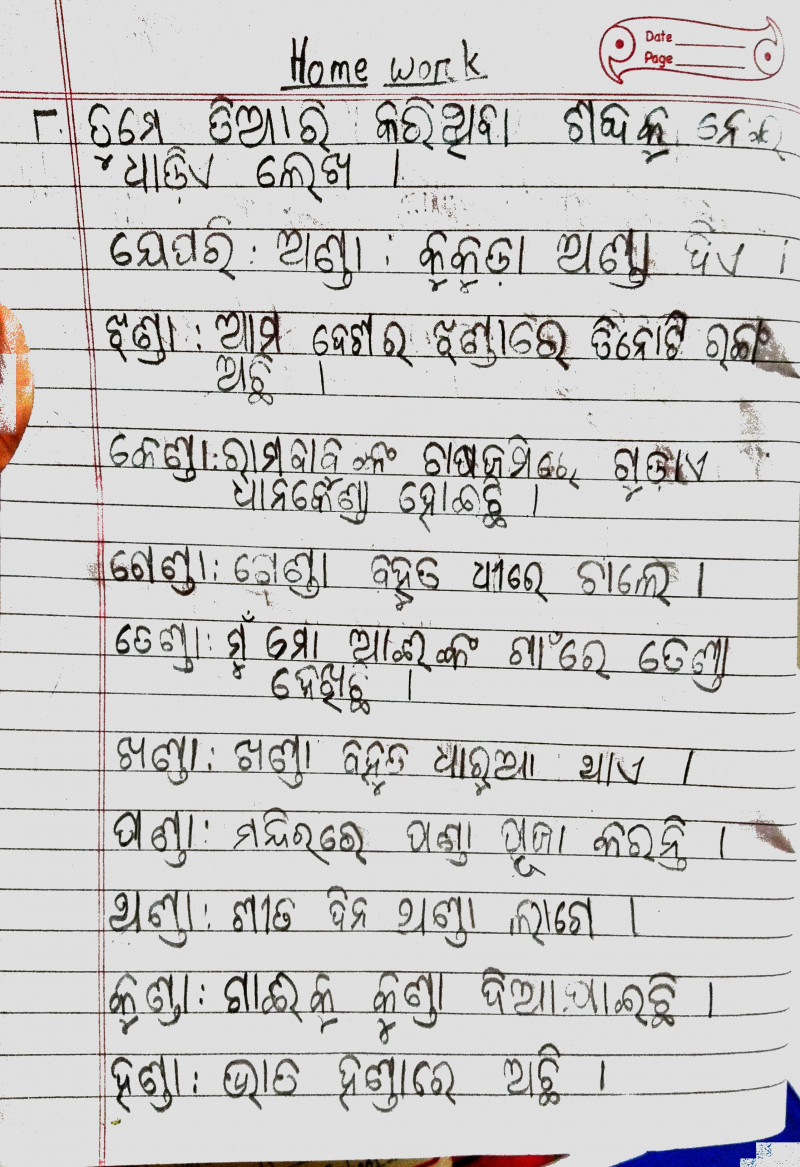 Home work
Date
Page
୮. ତୁମେ ତିଆରି କରିଥିବା ଶବ୍ଦକୁ ନେଇ
ଧାଡ଼ିଏ ଲେଖ ।
ଯେପରି : ଅଣ୍ଡା : କୁକୁଡ଼ା ଅଣ୍ଡା ଦିଏ ।
ଝଣ୍ଡା : ଆମ ଦେଶର ଝଣ୍ଡାରେ ତିନୋଟି ରଙ୍ଗ
ଅଛି ।
କେଣ୍ଡା : ରାମବାବିଙ୍କ ଚାଷଜମିରେ ଗୁଡ଼ାଏ
ଧାନକେଁଣ୍ଡା ହୋଇଛି ।
ଗେଣ୍ଡା : ଗେଣ୍ଡା ବହୁତ ଧୀରେ ଚାଲେ ।
ତେଣ୍ଡା : ମୁଁ ମୋ ଆଈଙ୍କ ଗାଁରେ ତେଣ୍ଡା
ଦେଖିଛି ।
ଖଣ୍ଡା : ଖଣ୍ଡା ବହୁତ ଧାରୁଆ ଥାଏ ।
ପଣ୍ଡା : ମନ୍ଦିରରେ ପଣ୍ଡା ପୂଜା କରନ୍ତି ।
ଥଣ୍ଡା : ଶୀତ ଦିନ ଥଣ୍ଡା ଲାଗେ ।
କୁଣ୍ଡା : ଗାଈକୁ କୁଣ୍ଡା ଦିଆଯାଇଛି ।
ହଣ୍ଡା : ଭାତ ହଣ୍ଡାରେ ଅଛି ।